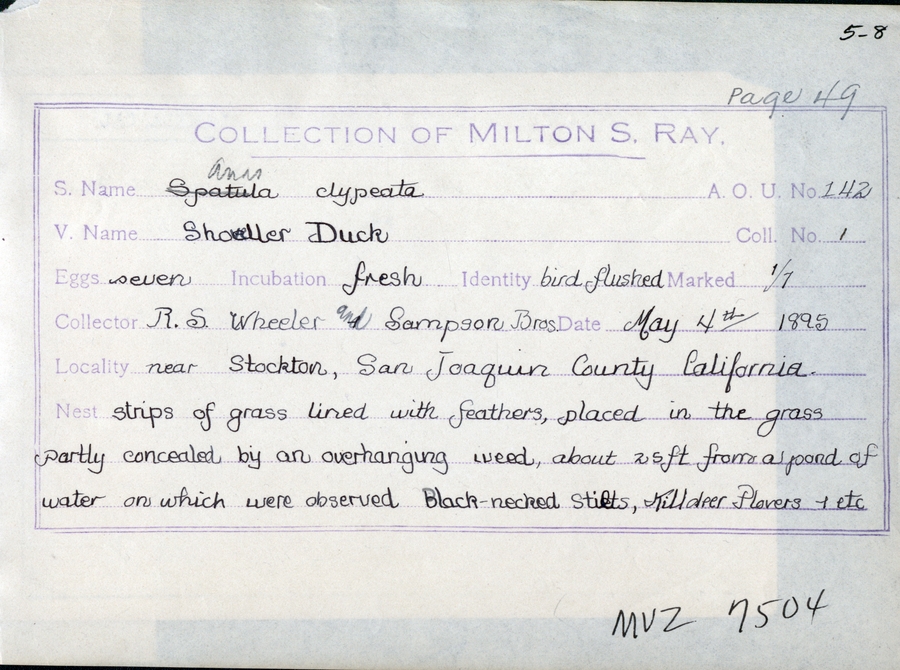 5-8
Page 49
COLLECTION OF MILTON S. RAY.
Anas
S. Name Spatula clypeata A. O. U. No. 142
V. Name Shoveller Duck Coll. No. 1
Eggs seven Incubation fresh Identity bird flushed Marked 1/7
Collector R. S. Wheeler and Sampson Bros. Date May 4th 1895
Locality near Stockton, San Joaquin County California.
Nest strips of grass lined with feathers, placed in the grass
partly concealed by an overhanging weed, about 25ft from a pond of
water on which were observed Black-necked Stilts, Killdeer Plovers + etc
MVZ 7504